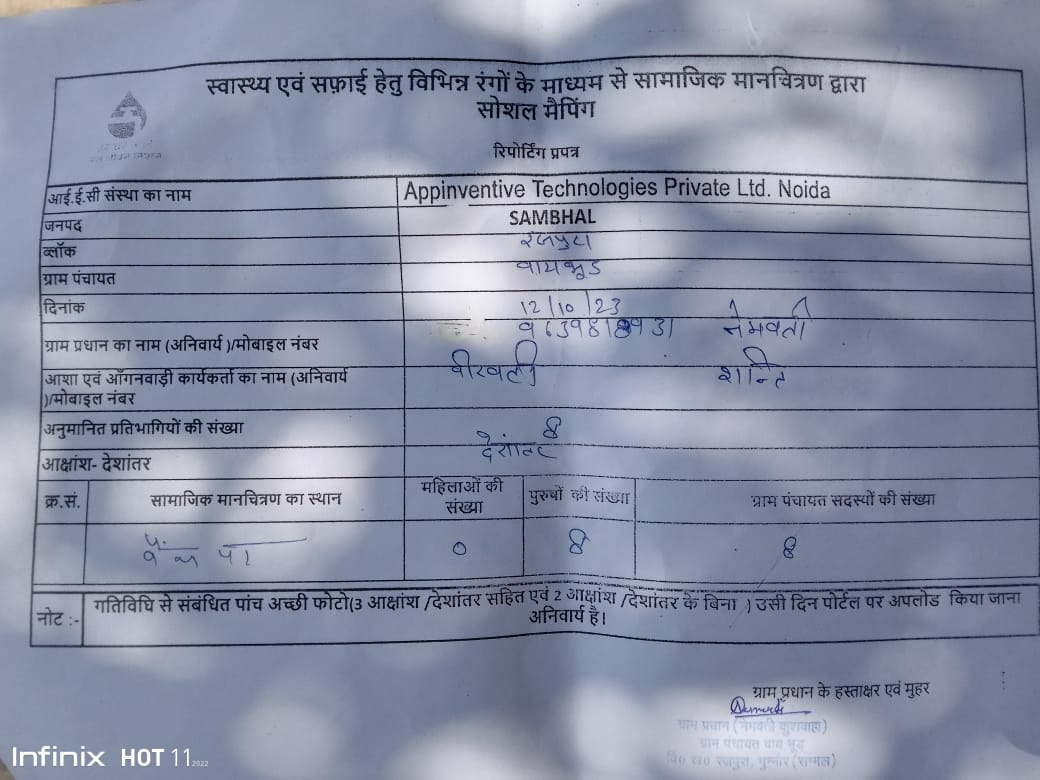 स्वास्थ्य एवं सफ़ाई हेतु विभिन्न रंगों के माध्यम से सामाजिक मानचित्रण द्वारा
सोशल मैपिंग
रिपोर्टिंग प्रपत्र
आई.ई.सी संस्था का नाम Appinventive Technologies Private Ltd. Noida
जनपद SAMBHAL
ब्लॉक रजपुरा
ग्राम पंचायत बायभूड
दिनांक 12/10/23
ग्राम प्रधान का नाम (अनिवार्य )/मोबाइल नंबर नेमवती
आशा एवं ऑंगनवाड़ी कार्यकर्ता का नाम (अनिवार्य वीरवती शान्ति
)/मोबाइल नंबर
अनुमानित प्रतिभागियों की संख्या 8
आक्षांश- देशांतर देशांतर
क्र.सं. सामाजिक मानचित्रण का स्थान महिलाओं की संख्या पुरुषों की संख्या ग्राम पंचायत सदस्यों की संख्या
0 8 8
नोट :- गतिविधि से संबंधित पांच अच्छी फोटो(3 आक्षांश /देशांतर सहित एवं 2 आक्षांश /देशांतर के बिना ) उसी दिन पोर्टल पर अपलोड किया जाना
अनिवार्य है।
ग्राम प्रधान के हस्ताक्षर एवं मुहर
ग्राम प्रधान (नेमवती कुशवाहा)
ग्राम पंचायत बाय भूड़
वि० ख० रजपुरा, गुन्नौर (सम्भल)
Infinix HOT 11 2022